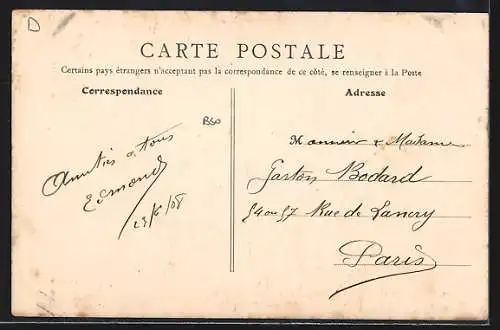 D
CARTE POSTALE
Certains pays étrangers n'acceptant pas la correspondance de ce côté, se renseigner à la Poste
Correspondance
Adresse
B50
Amitiés à tous
Edmond
23/6/08
Monsieur & Madame
Gaston Bodard
54 ou 57 Rue de Lancry
Paris